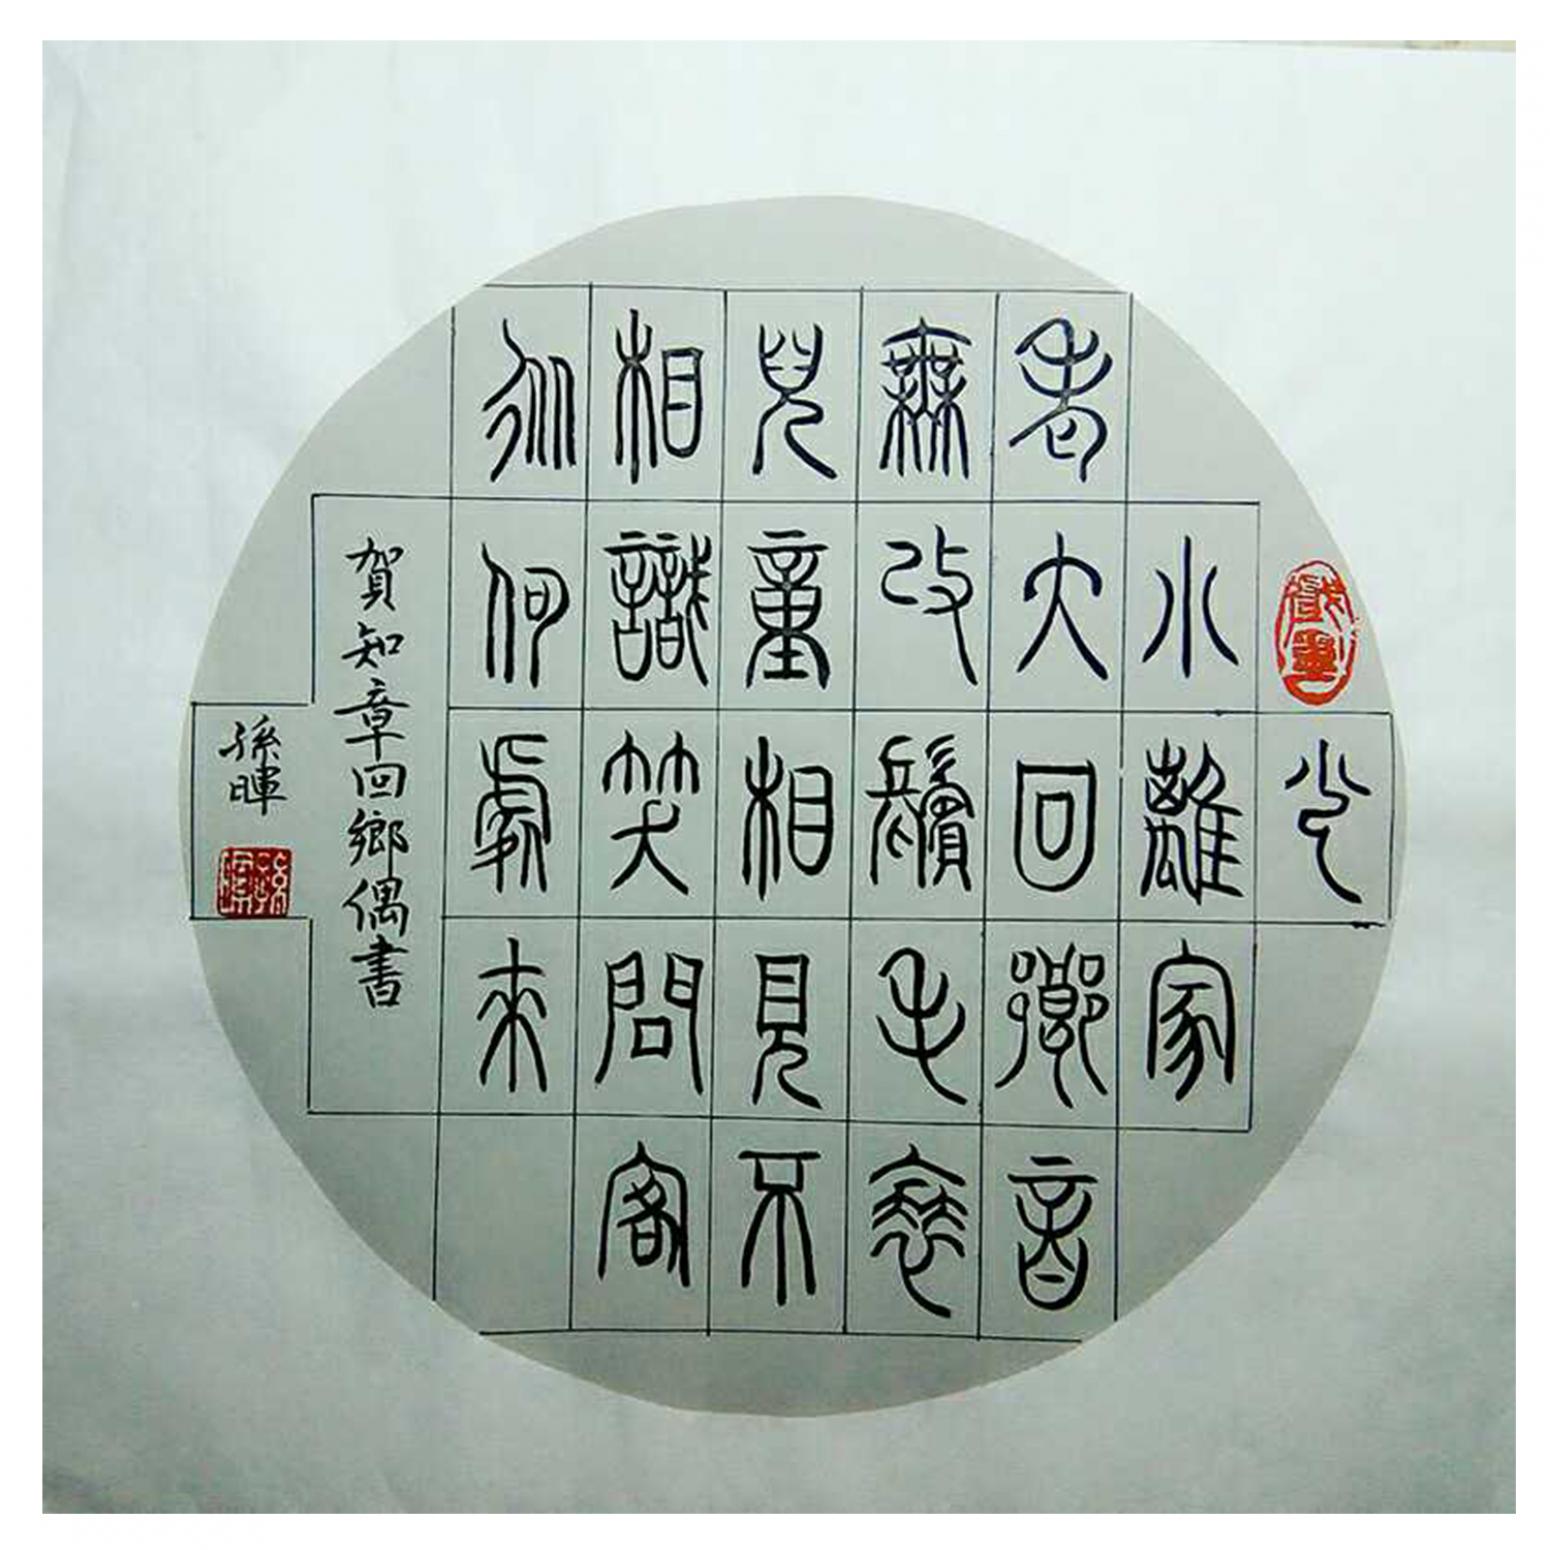 少
小離家
老大回鄉音
無改鬢毛衰
兒童相見不
相識笑問客
從何處來
賀知章回鄉偶書
孫暉